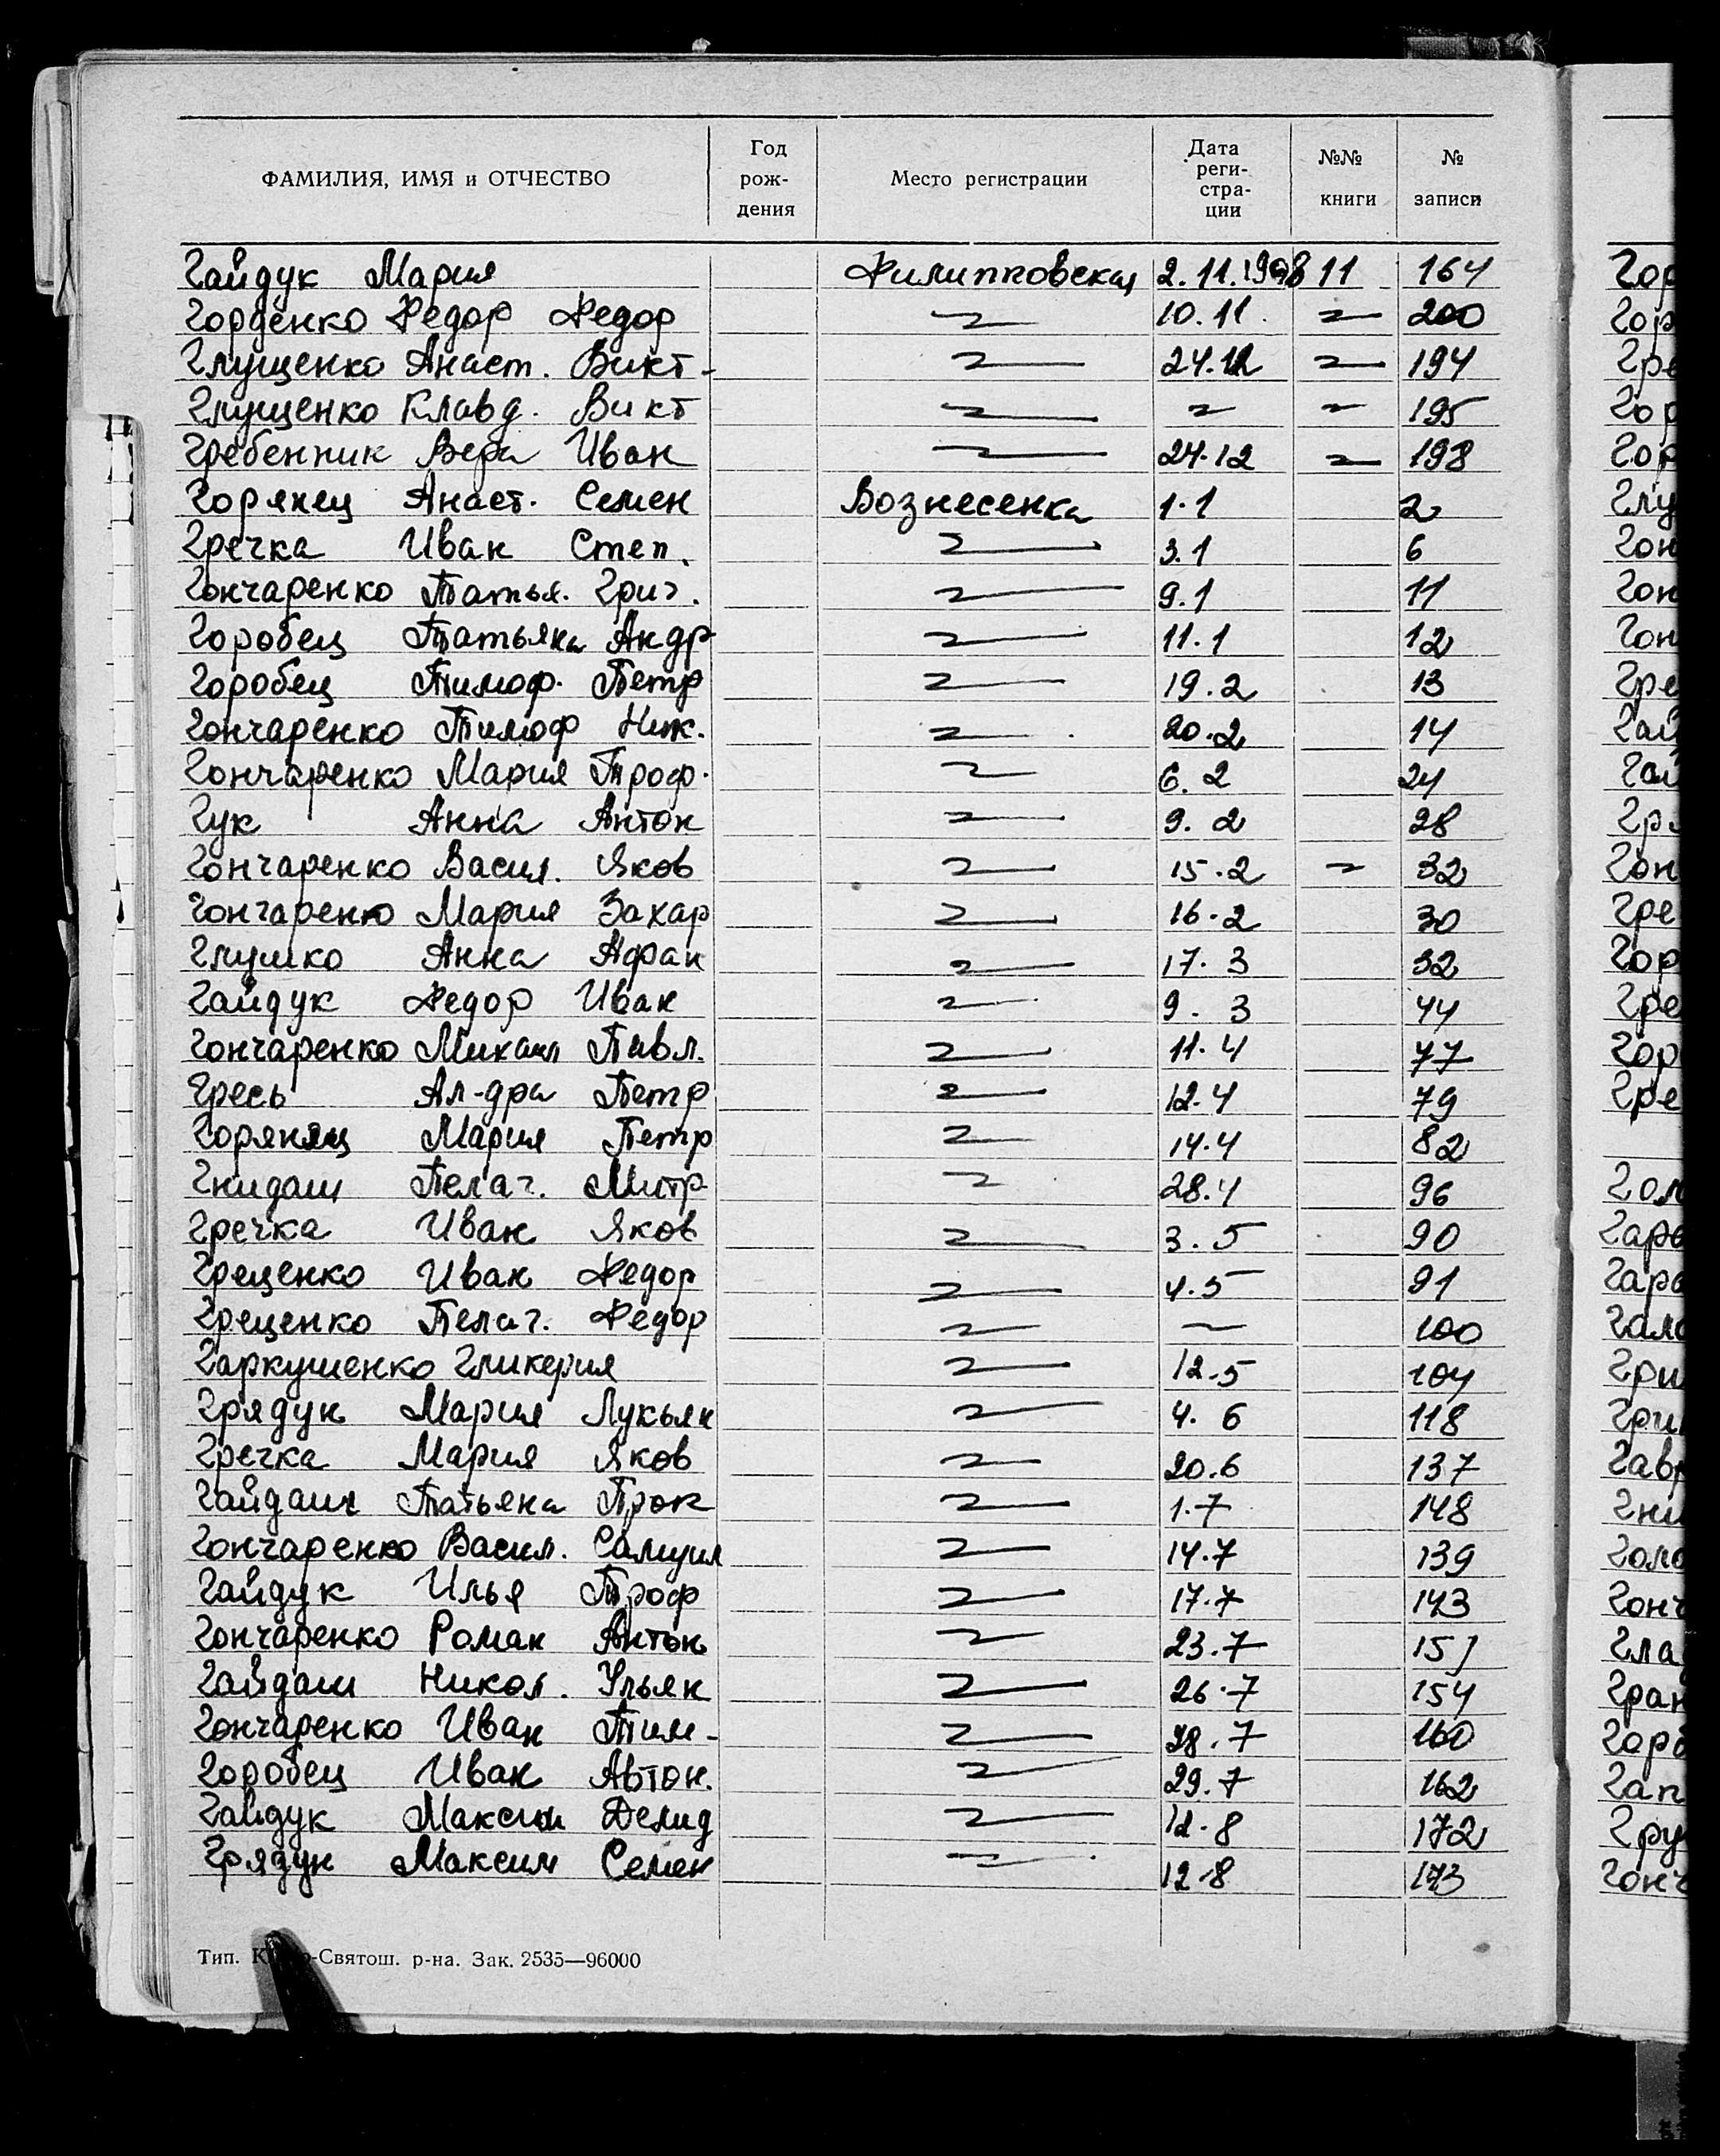 ФАМИЛИЯ, ИМЯ и ОТЧЕСТВО | Год рож-дения | Место регистрации | Дата реги-стра-ции | №№ книги | № записи
Гайдук Мария Филипповская 2.11.1908 11 164
Горденко Федор Федор 10.11. 200
Глущенко Анаст. Викт- 24.12 194
Глущенко Клавд. Викт 195
Гребенник Вера Иван 24.12 198
Горянец Анаст. Семен Вознесенка 1.1 2
Гречка Иван Степ. 3.1 6
Гончаренко Татья. Григ. 9.1 11
Горобец Татьяна Андр 11.1 12
Горобец Тимоф. Петр 19.2 13
Гончаренко Тимоф Ник. 20.2 14
Гончаренко Мария Троф. 6.2 24
Гук Анна Антон 9.2 28
Гончаренко Васил. Яков 15.2 32
Гончаренко Мария Захар 16.2 30
Глушко Анна Афан 17.3 32
Гайдук Федор Иван 9.3 44
Гончаренко Михаил Павл. 11.4 77
Гресь Ал-дра Петр 12.4 79
Горянец Мария Петр 14.4 82
Гнидаш Пелаг. Митр 28.4 96
Гречка Иван Яков 3.5 90
Греценко Иван Федор 4.5 91
Греценко Пелаг. Федор — 100
Гаркушенко Гликерия 12.5 104
Грядун Мария Лукьян 4.6 118
Гречка Мария Яков 20.6 137
Гайдаш Татьяна Прок 1.7 148
Гончаренко Васил. Самуил 14.7 139
Гайдук Илья Троф 17.7 143
Гончаренко Роман Антон 23.7 151
Гайдаш Никол. Ульян 26.7 154
Гончаренко Иван Тим- 28.7 160
Горобец Иван Автон. 29.7 162
Гайдук Максим Демид 12.8 172
Грядун Максим Семен 12.8 173
Тип. -Святош. р-на. Зак. 2535—96000